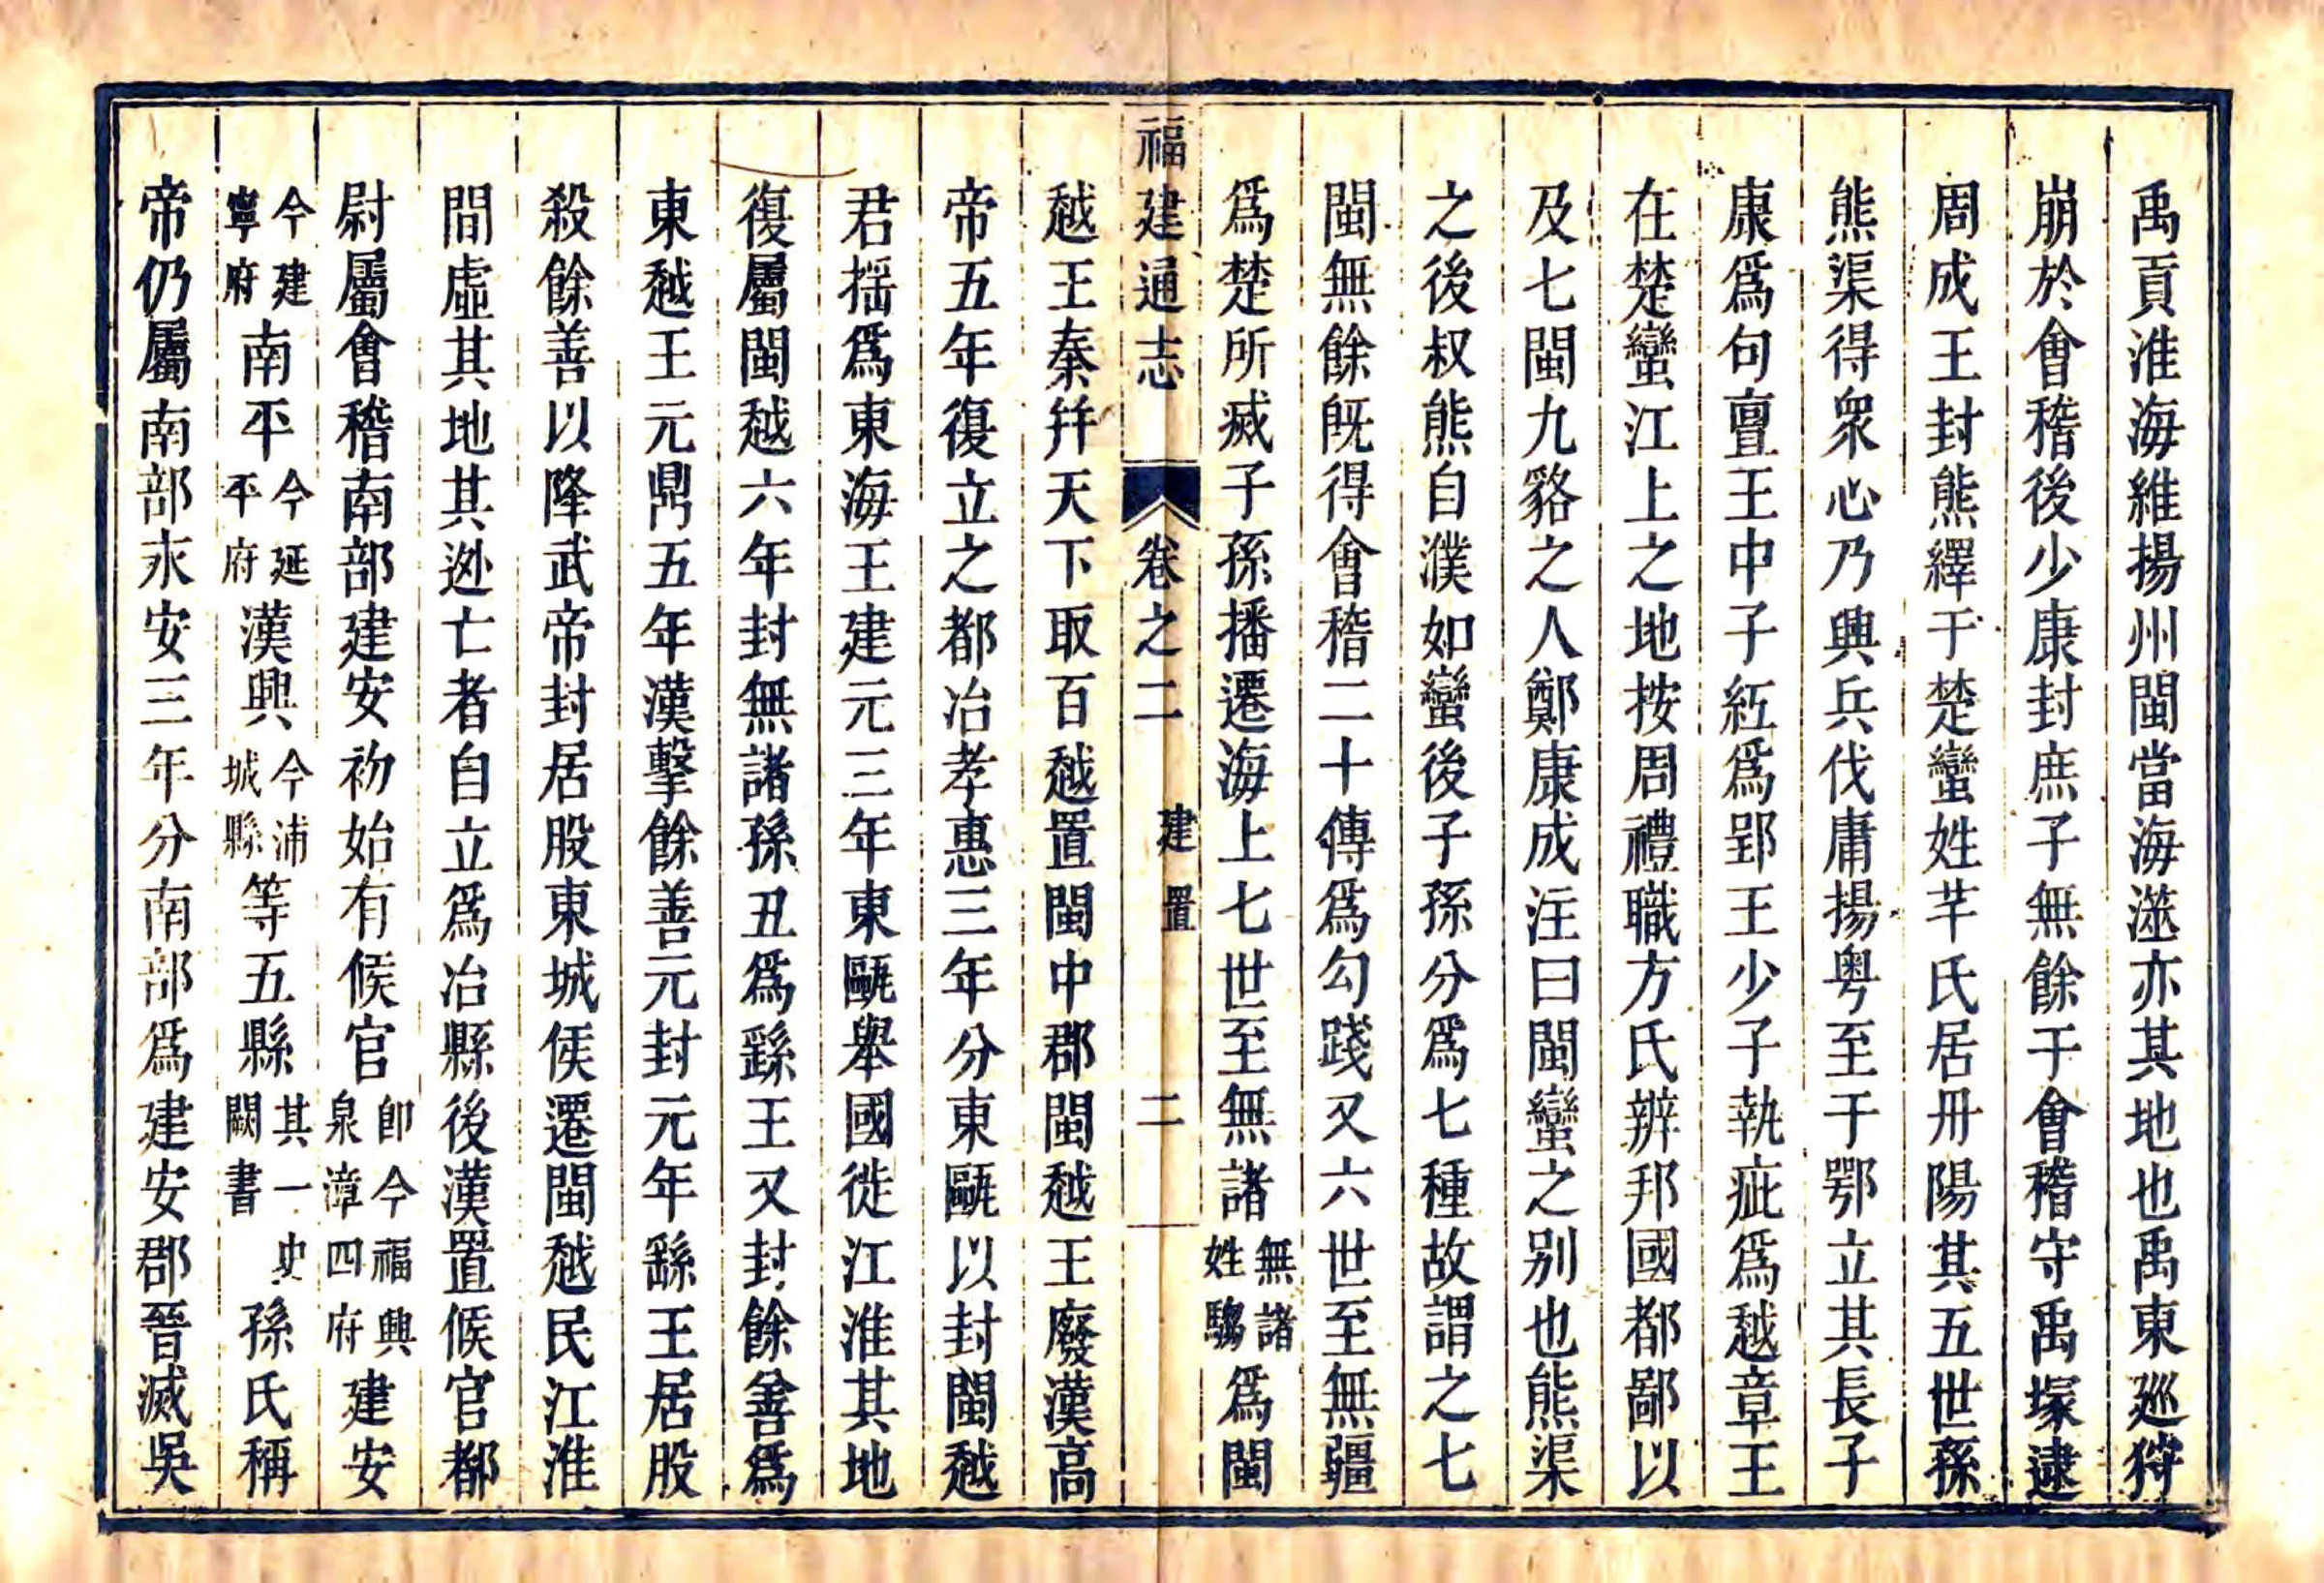 禹貢淮海維揚州閩當海澨亦其地也禹東廵狩
崩於會稽後少康封庶子無餘于會稽守禹塚逮
周成王封熊繹于楚蠻姓芉氏居丹陽其五世孫
熊渠得衆心乃興兵伐庸揚粤至于鄂立其長子
康爲句亶王中子紅爲郢王少子執疵爲越章王
在楚蠻江上之地按周禮職方氏辨邦國都鄙以
及七閩九貉之人鄭康成注曰閩蠻之别也熊渠
之後叔熊自濮如蠻後子孫分爲七種故謂之七
閩無餘旣得會稽二十傳爲勾踐又六世至無疆
爲楚所㓕子孫播遷海上七世至無諸無諸姓騶爲閩
福建通志 卷之二 建置 二
越王秦并天下取百越置閩中郡閩越王廢漢高
帝五年復立之都冶孝惠三年分東甌以封閩越
君揺爲東海王建元三年東甌舉國徙江淮其地
復屬閩越六年封無諸孫丑爲繇王又封餘善爲
東越王元鼎五年漢擊餘善元封元年繇王居股
殺餘善以降武帝封居股東城侯遷閩越民江淮
間虛其地其逃亡者自立爲冶縣後漢置候官都
尉屬會稽南部建安初始有候官卽今福興泉漳四府建安
今建寧府南平今延平府漢興今浦城縣等五縣其一史闕書孫氏稱
帝仍屬南部永安三年分南部爲建安郡晉滅吳